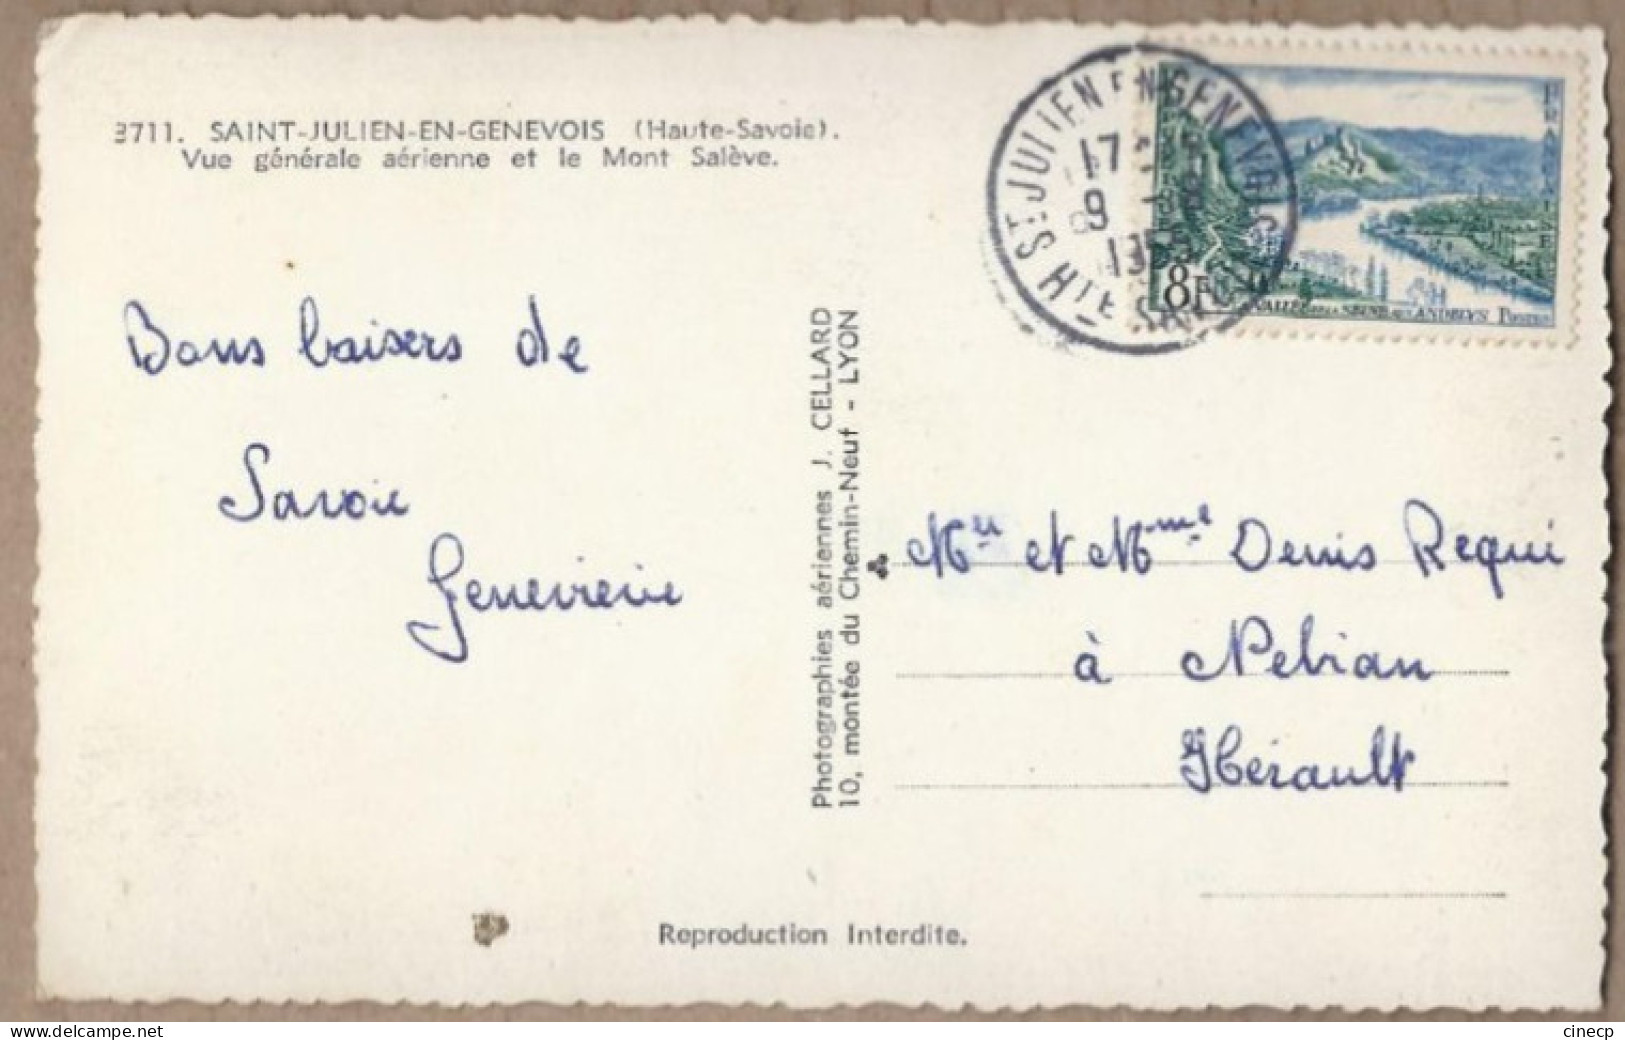 3711. SAINT-JULIEN-EN-GENEVOIS (Haute-Savoie).
Vue générale aérienne et le Mont Salève.
ST JULIEN EN GENEVOIS
17
9 - 8
1955
HTE SAVOIE
FRANÇAISE
8F
VALLÉE DE LA SEINE AUX ANDELYS POSTES
Bons baisers de
Savoie
Genevieve
Photographies aériennes J. CELLARD
10, montée du Chemin-Neuf - LYON
Mr et Mme Denis Requi
à Nebian
Hérault
Reproduction Interdite.
delcampe.net
cinecp